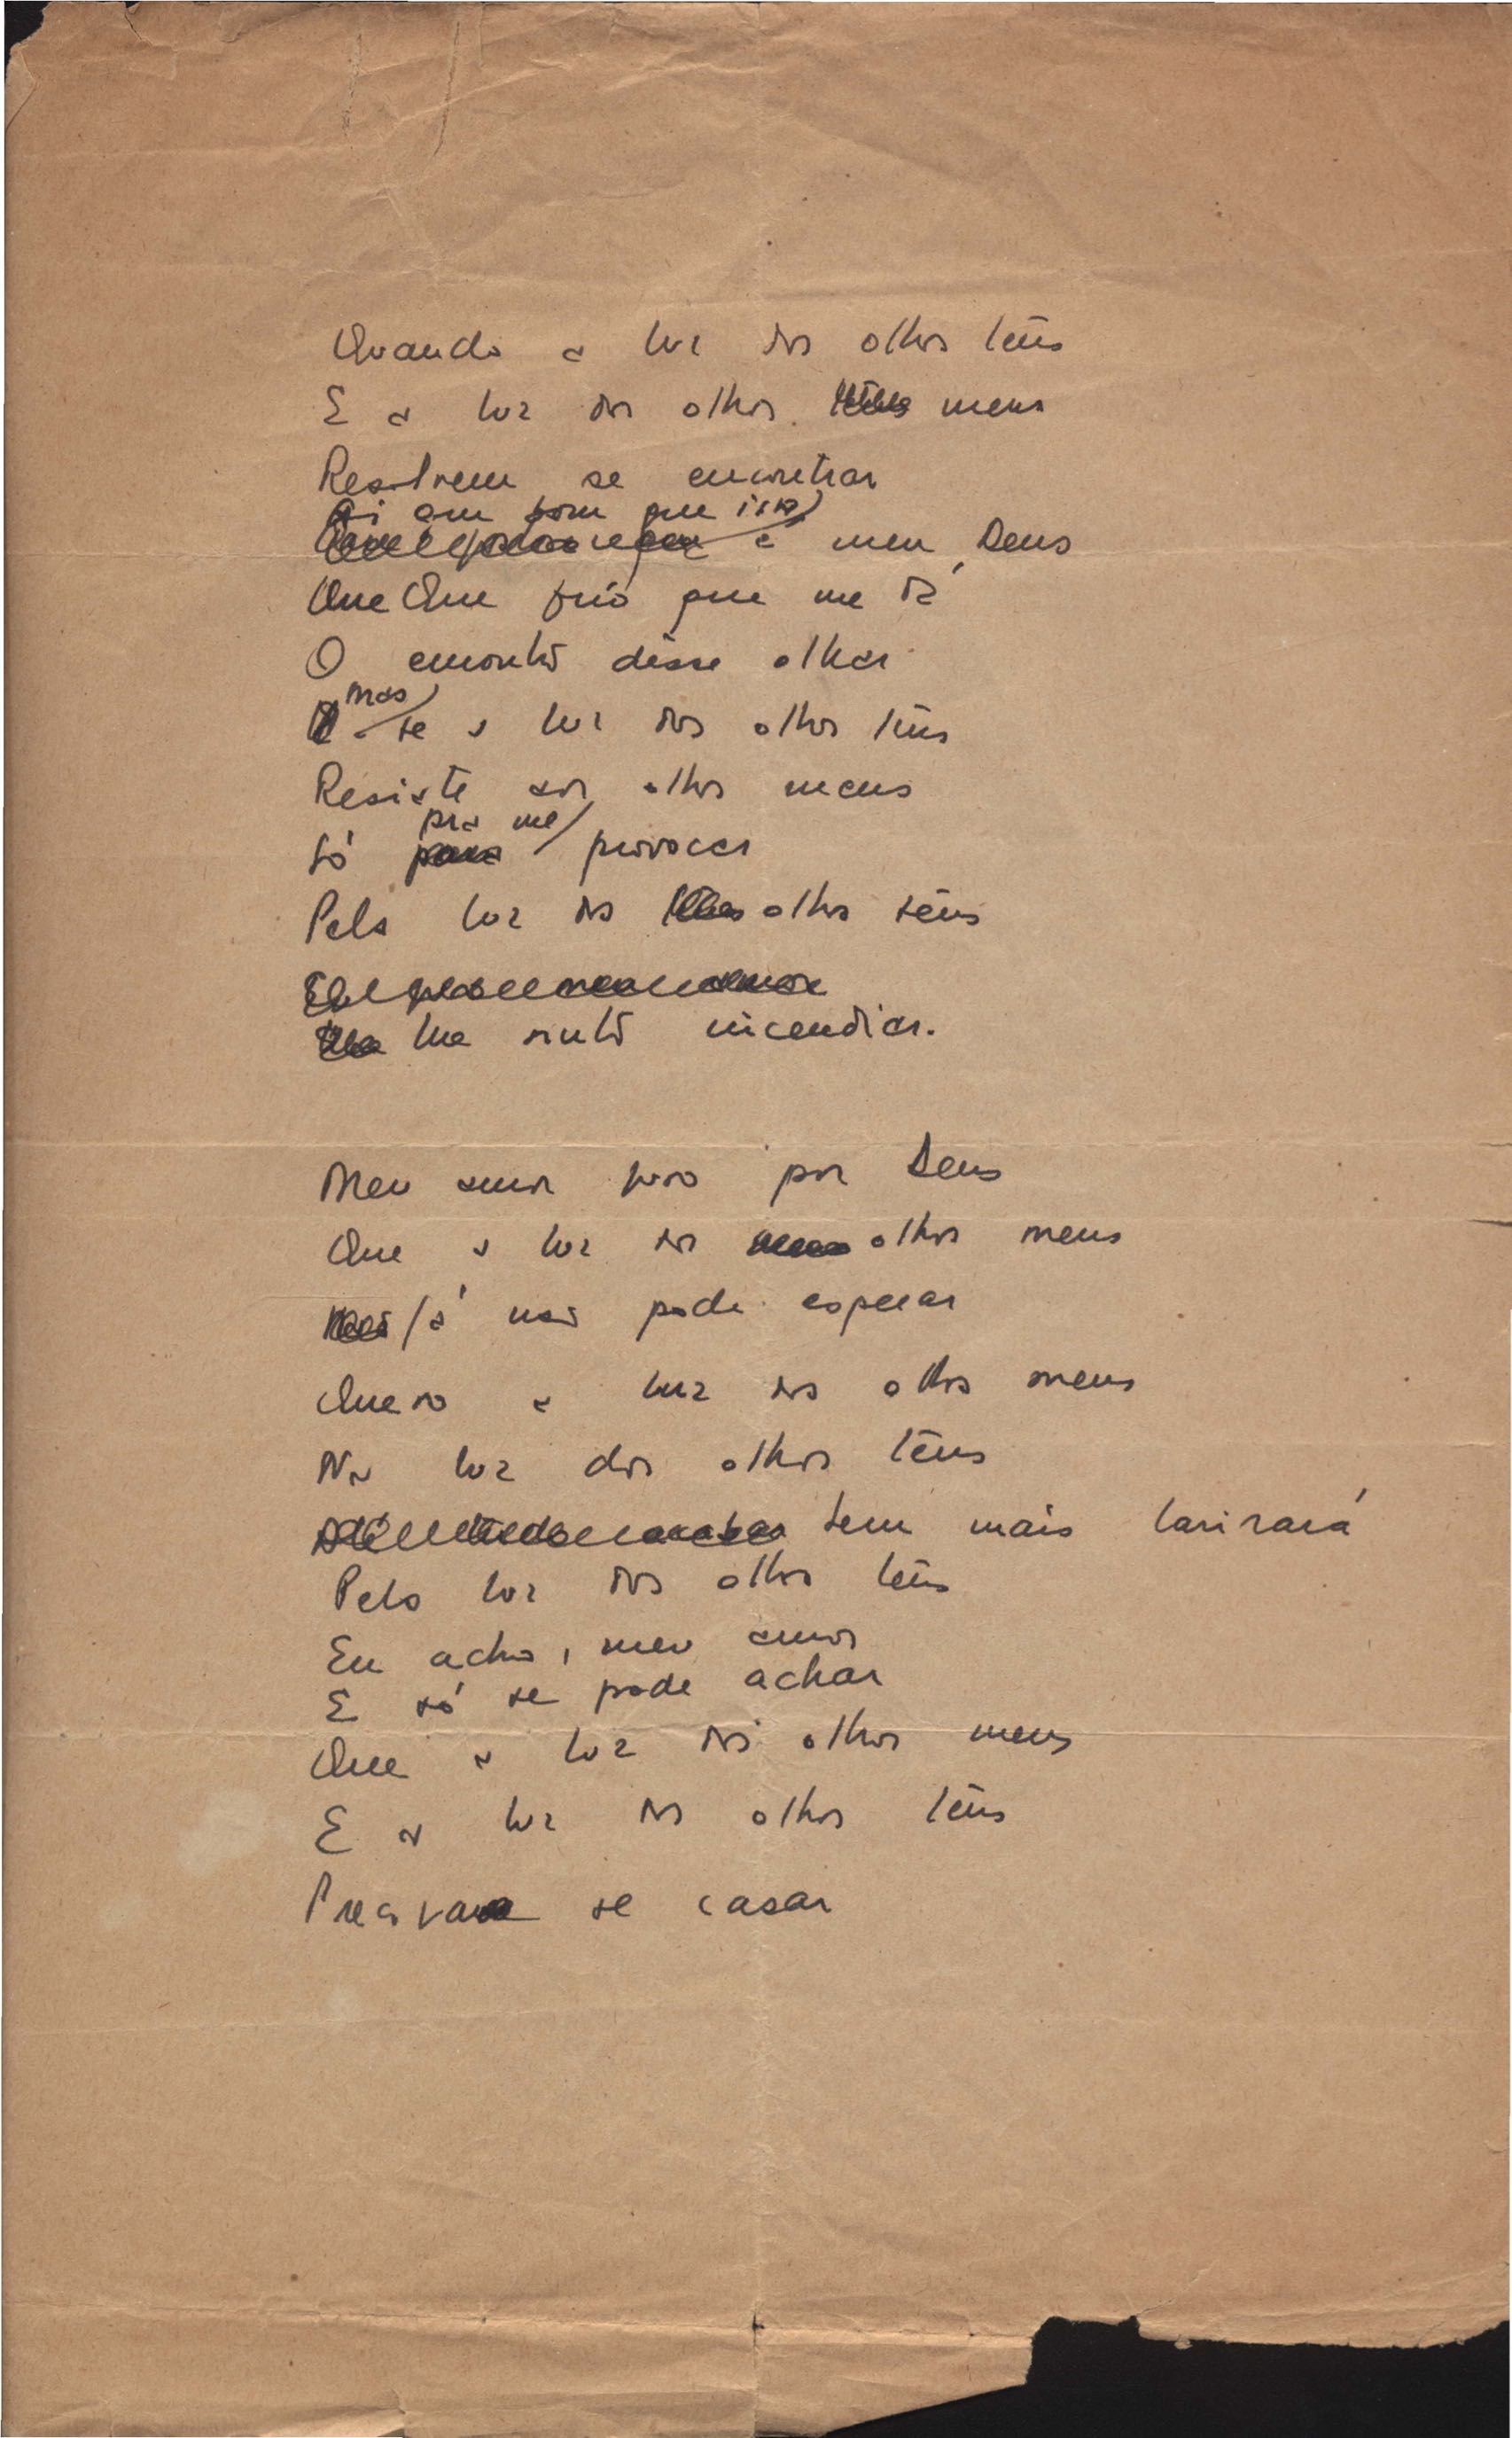 Quando a luz dos olhos têus
E a luz dos olhos meus
Resolvem se encontrar
Ai que bom que isso
é meu Deus
Que Que frio que me dá
O encontro dêsse olhar
mas
se a luz dos olhos têus
Resiste aos olhos meus
pra me
Só para provocar
Pela luz dos olhos têus
Me sinto incendiar.
Meu amor juro por Deus
Que a luz dos olhos meus
Já não pode esperar
Quero a luz dos olhos meus
Na luz dos olhos têus
Sem mais larirará
Pela luz dos olhos têus
Eu acho, meu amor
E só se pode achar
Que a luz dos olhos meus
E a luz dos olhos têus
se casar